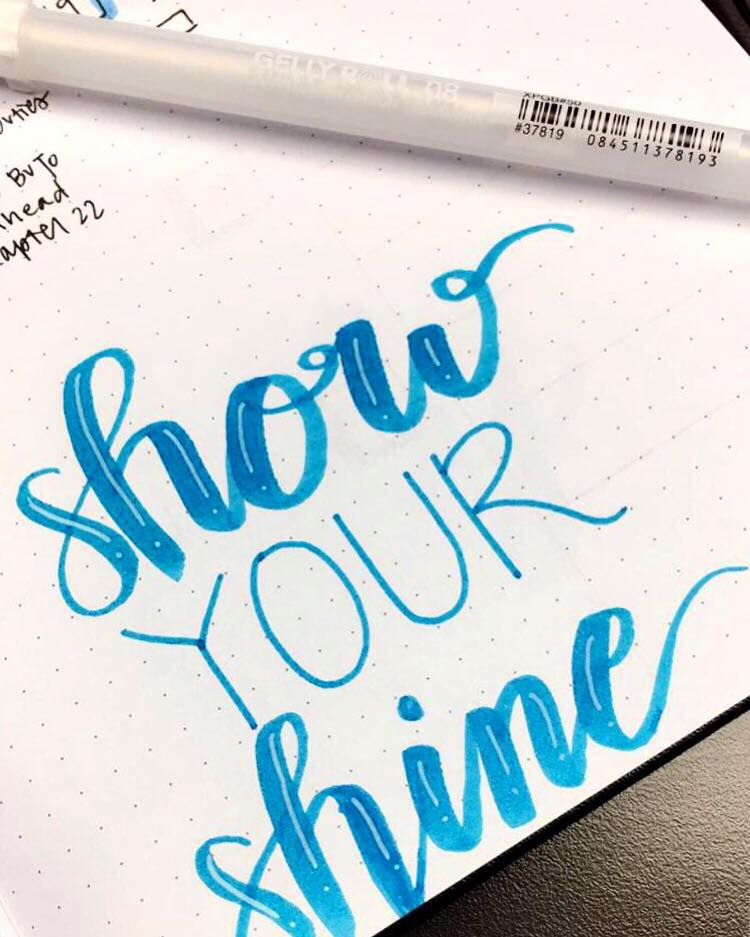 GELLY ROLL 08
XPGB#50
#37819 084511378193
BuJo
ahead
Chapter 22
show
YOUR
shine